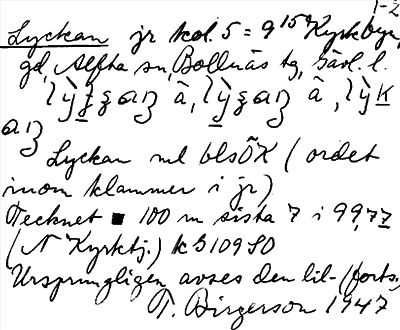 1-2
Lyckan jr kol. 5 = 9 15q Kyrkbyn,
gd, Alfta sn, Bollnäs tg, Gävl. l.
Lyckan ml blsÖK (ordet
inom klammer i jr)
Tecknet ■ 100 m sista 7 i 99,77
(N Kyrktj.) kB109SO
Ursprungligen avses den lil- (forts.)
T. Birgerson 1947